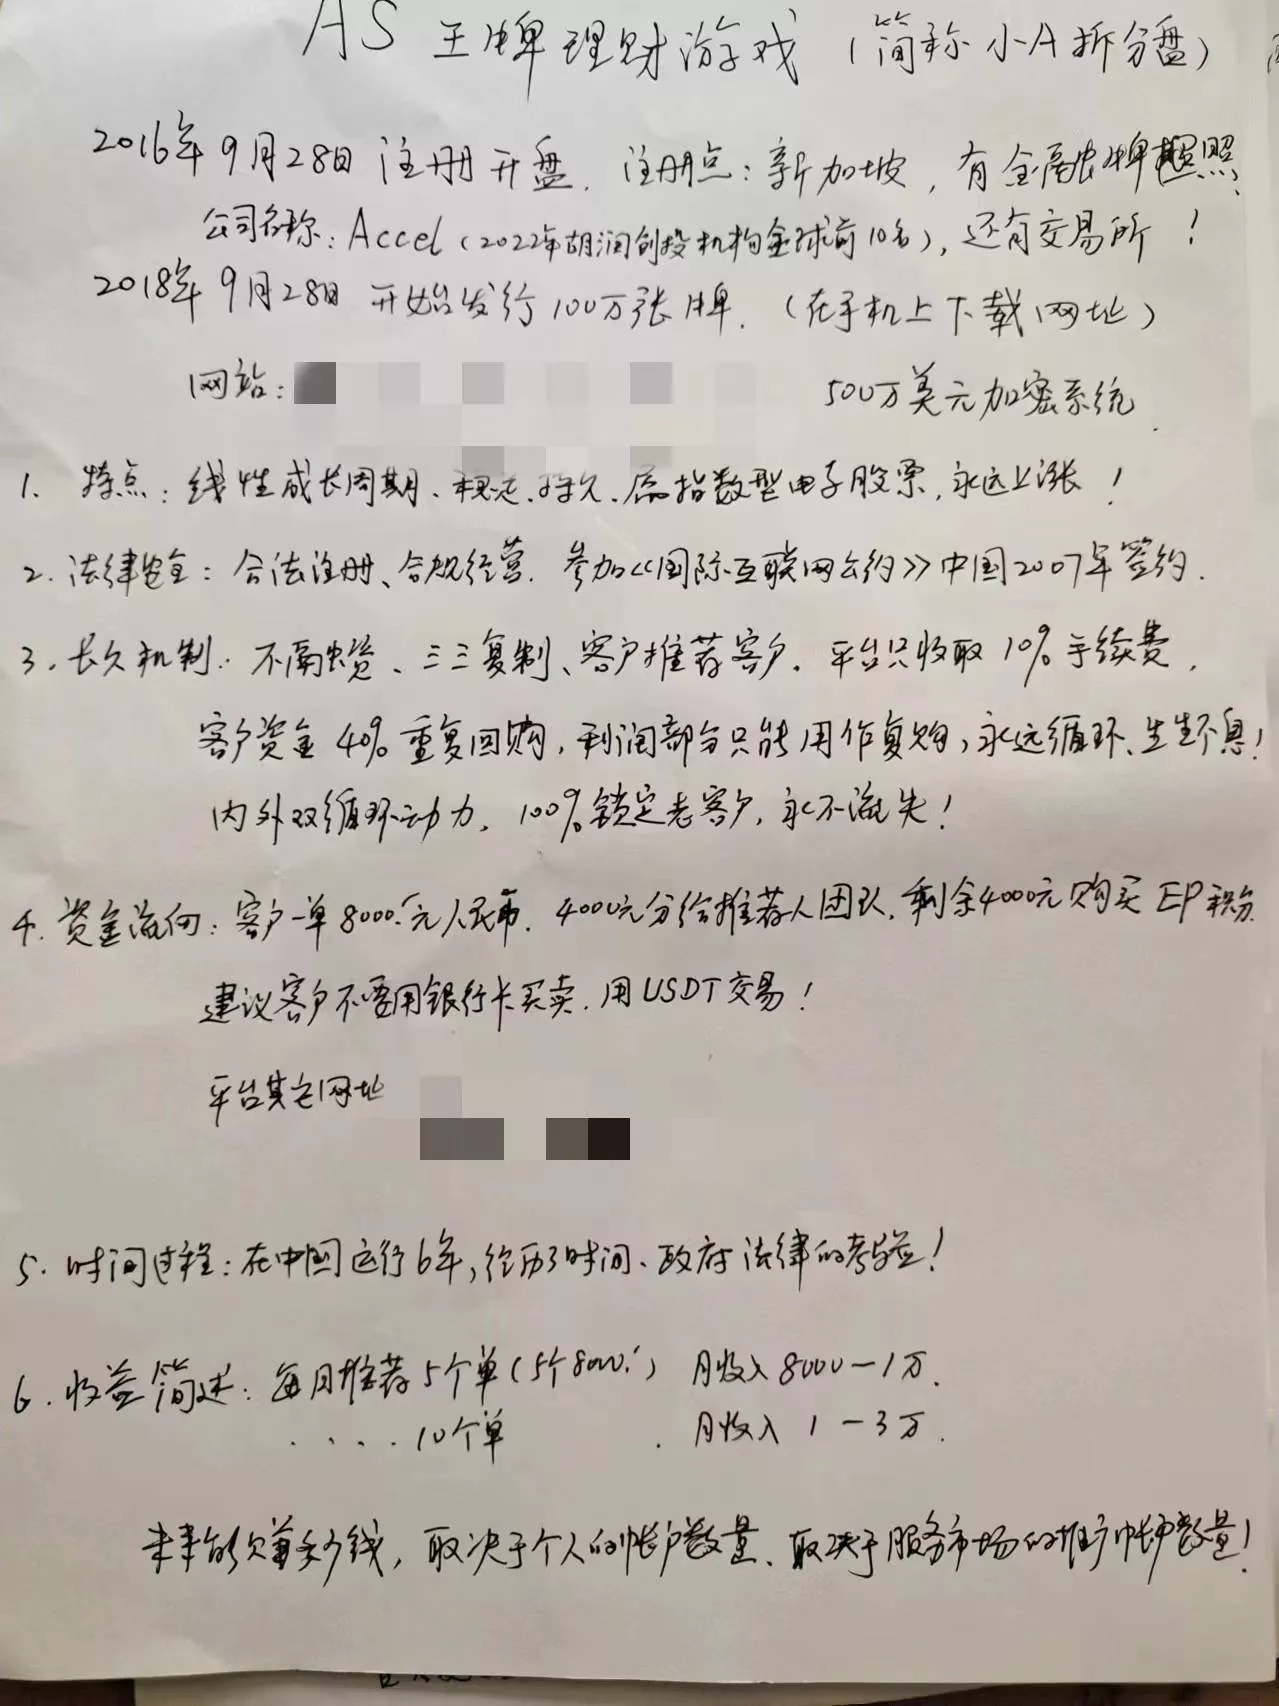 AS 王牌理财游戏（简称小A拆分盘）
2016年9月28日 注册开盘. 注册点：新加坡，有金融牌照，
公司名称：Accel（2022年胡润创投机构全球前10名），还有交易所！
2018年9月28日 开始发行100万张牌.（在手机上下载网址）
网站：
500万美元加密系统.
1. 特点：线性成长周期、稳定、持久、属指数型电子股票，永远上涨！
2. 法律安全：合法注册、合规经营. 参加《国际互联网公约》中国2007年签约.
3. 长久机制：不融资、三三复制、客户推荐客户. 平台只收取10%手续费，
客户资金40%重复回购，利润部分只能用作复购，永远循环、生生不息！
内外双循环动力，100%锁定老客户，永不流失！
4. 资金流向：客户一单8000元人民币. 4000元分给推荐人团队，剩余4000元购买EP积分
建议客户不要用银行卡买卖，用USDT交易！
平台其它网址
5. 时间过程：在中国运行6年，经历了时间、政府法律的考验！
6. 收益简述：每月推荐5个单（5个8000） 月收入8000-1万.
....10个单 . 月收入1-3万.
未来能赚多少钱，取决于个人的帐户数量、取决于服务市场的推广帐户数量！